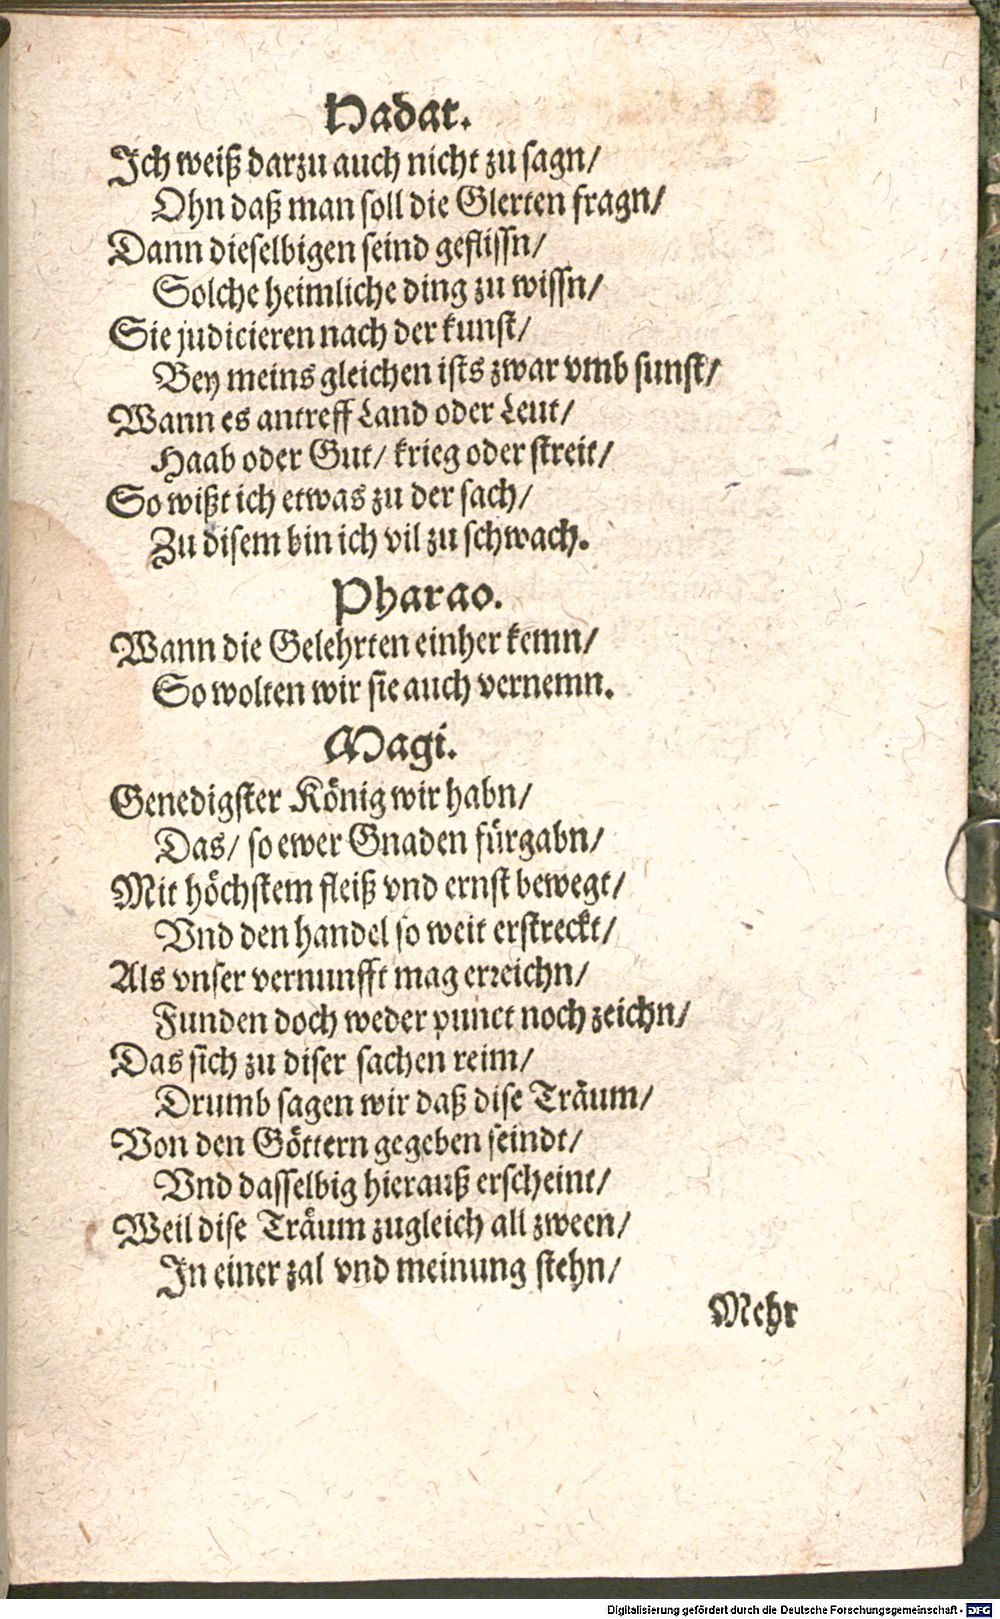 Nadat.
Ich weiß darzu auch nicht zu sagn/
Ohn daß man soll die Glerten fragn/
Dann dieselbigen seind geflissn/
Solche heimliche ding zu wissn/
Sie judicieren nach der kunst/
Bey meins gleichen ists zwar vmb sunst/
Wann es antreff Land oder Leut/
Haab oder Gut/ krieg oder streit/
So wißt ich etwas zu der sach/
Zu disem bin ich vil zu schwach.
Pharao.
Wann die Gelehrten einher kemn/
So wolten wir sie auch vernemn.
Magi.
Genedigster König wir habn/
Das/ so ewer Gnaden fürgabn/
Mit höchstem fleiß vnd ernst bewegt/
Vnd den handel so weit erstreckt/
Als vnser vernunfft mag erreichn/
Funden doch weder punct noch zeichn/
Das sich zu diser sachen reim/
Drumb sagen wir daß dise Träum/
Von den Göttern gegeben seindt/
Vnd dasselbig hierauß erscheint/
Weil dise Träum zugleich all zween/
In einer zal vnd meinung stehn/
Mehr
Digitalisierung gefördert durch die Deutsche Forschungsgemeinschaft - DFG